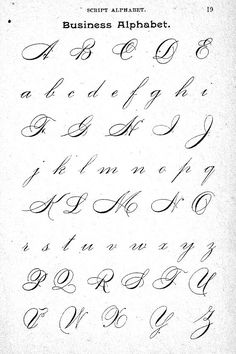 SCRIPT ALPHABET. 19
Business Alphabet.
A B C D E
a b c d e f g h i
F G H I J
j k l m n o p q
K L M N O
r s t u v w x y z
P Q R S T U
V W X Y Z